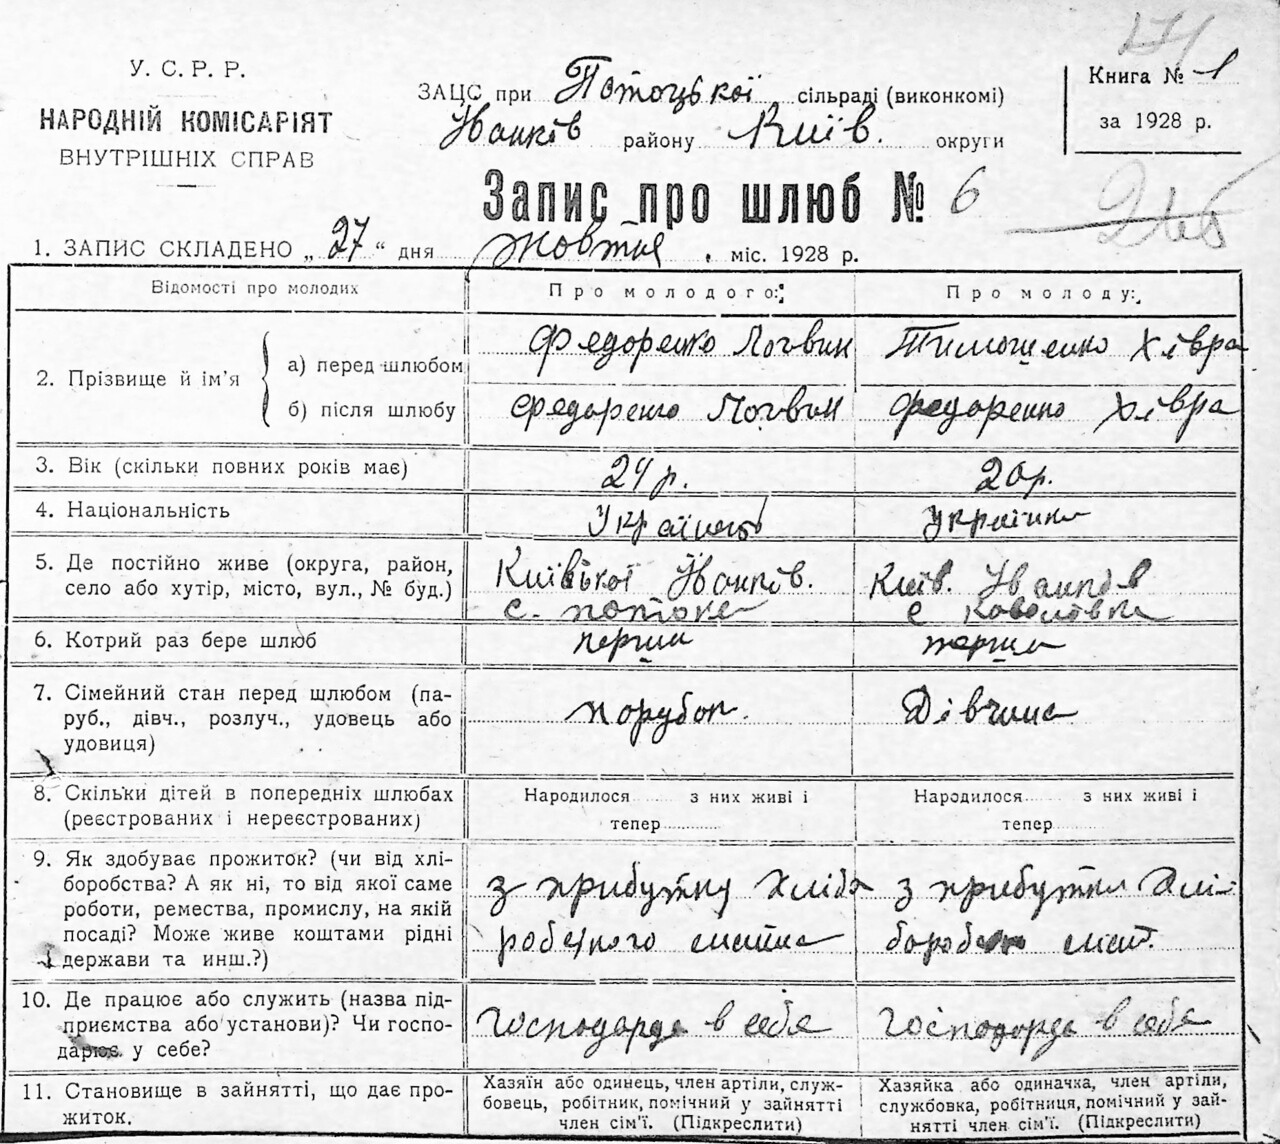 У. С. Р. Р.
НАРОДНІЙ КОМІСАРІЯТ
ВНУТРІШНІХ СПРАВ
ЗАЦС при Потоцької сільраді (виконкомі)
Іванків району Київ. округи
Книга № 1
за 1928 р.
Запис про шлюб № 6
266
1. ЗАПИС СКЛАДЕНО „27“ дня жовтня міс. 1928 р.
Відомості про молодих
Про молодого:
Про молоду:
2. Прізвище й ім’я
а) перед шлюбом
Федоренко Логвин
Тимошенко Хівра
б) після шлюбу
Федоренко Логвин
Федоренко Хівра
3. Вік (скільки повних років має)
24 р.
20 р.
4. Національність
Українець
Українка
5. Де постійно живе (округа, район,
село або хутір, місто, вул., № буд.)
Київської Іванків.
с. Потоки
Київ. Іванків
с Коваловка
6. Котрий раз бере шлюб
перши
перши
7. Сімейний стан перед шлюбом (па-
руб., дівч., розлуч., удовець або
удовиця)
порубок.
Дівчина
8. Скільки дітей в попередніх шлюбах
(реєстрованих і нереєстрованих)
Народилося з них живі і
тепер
Народилося з них живі і
тепер
9. Як здобуває прожиток? (чи від хлі-
боробства? А як ні, то від якої саме
роботи, ремества, промислу, на якій
посаді? Може живе коштами рідні
держави та инш.?)
з прибутку Хлібо
робського
з прибутки Хлі-
10. Де працює або служить (назва під-
приємства або установи)? Чи госпо-
дарює у себе?
господарює в себя
господорює в себя
11. Становище в зайнятті, що дає про-
житок.
Хазяїн або одинець, член артіли, служ-
бовець, робітник, помічний у зайнятті
член сім’ї. (Підкреслити)
Хазяйка або одиначка, член артіли,
службовка, робітниця, помічний у зай-
нятті член сім’ї. (Підкреслити)